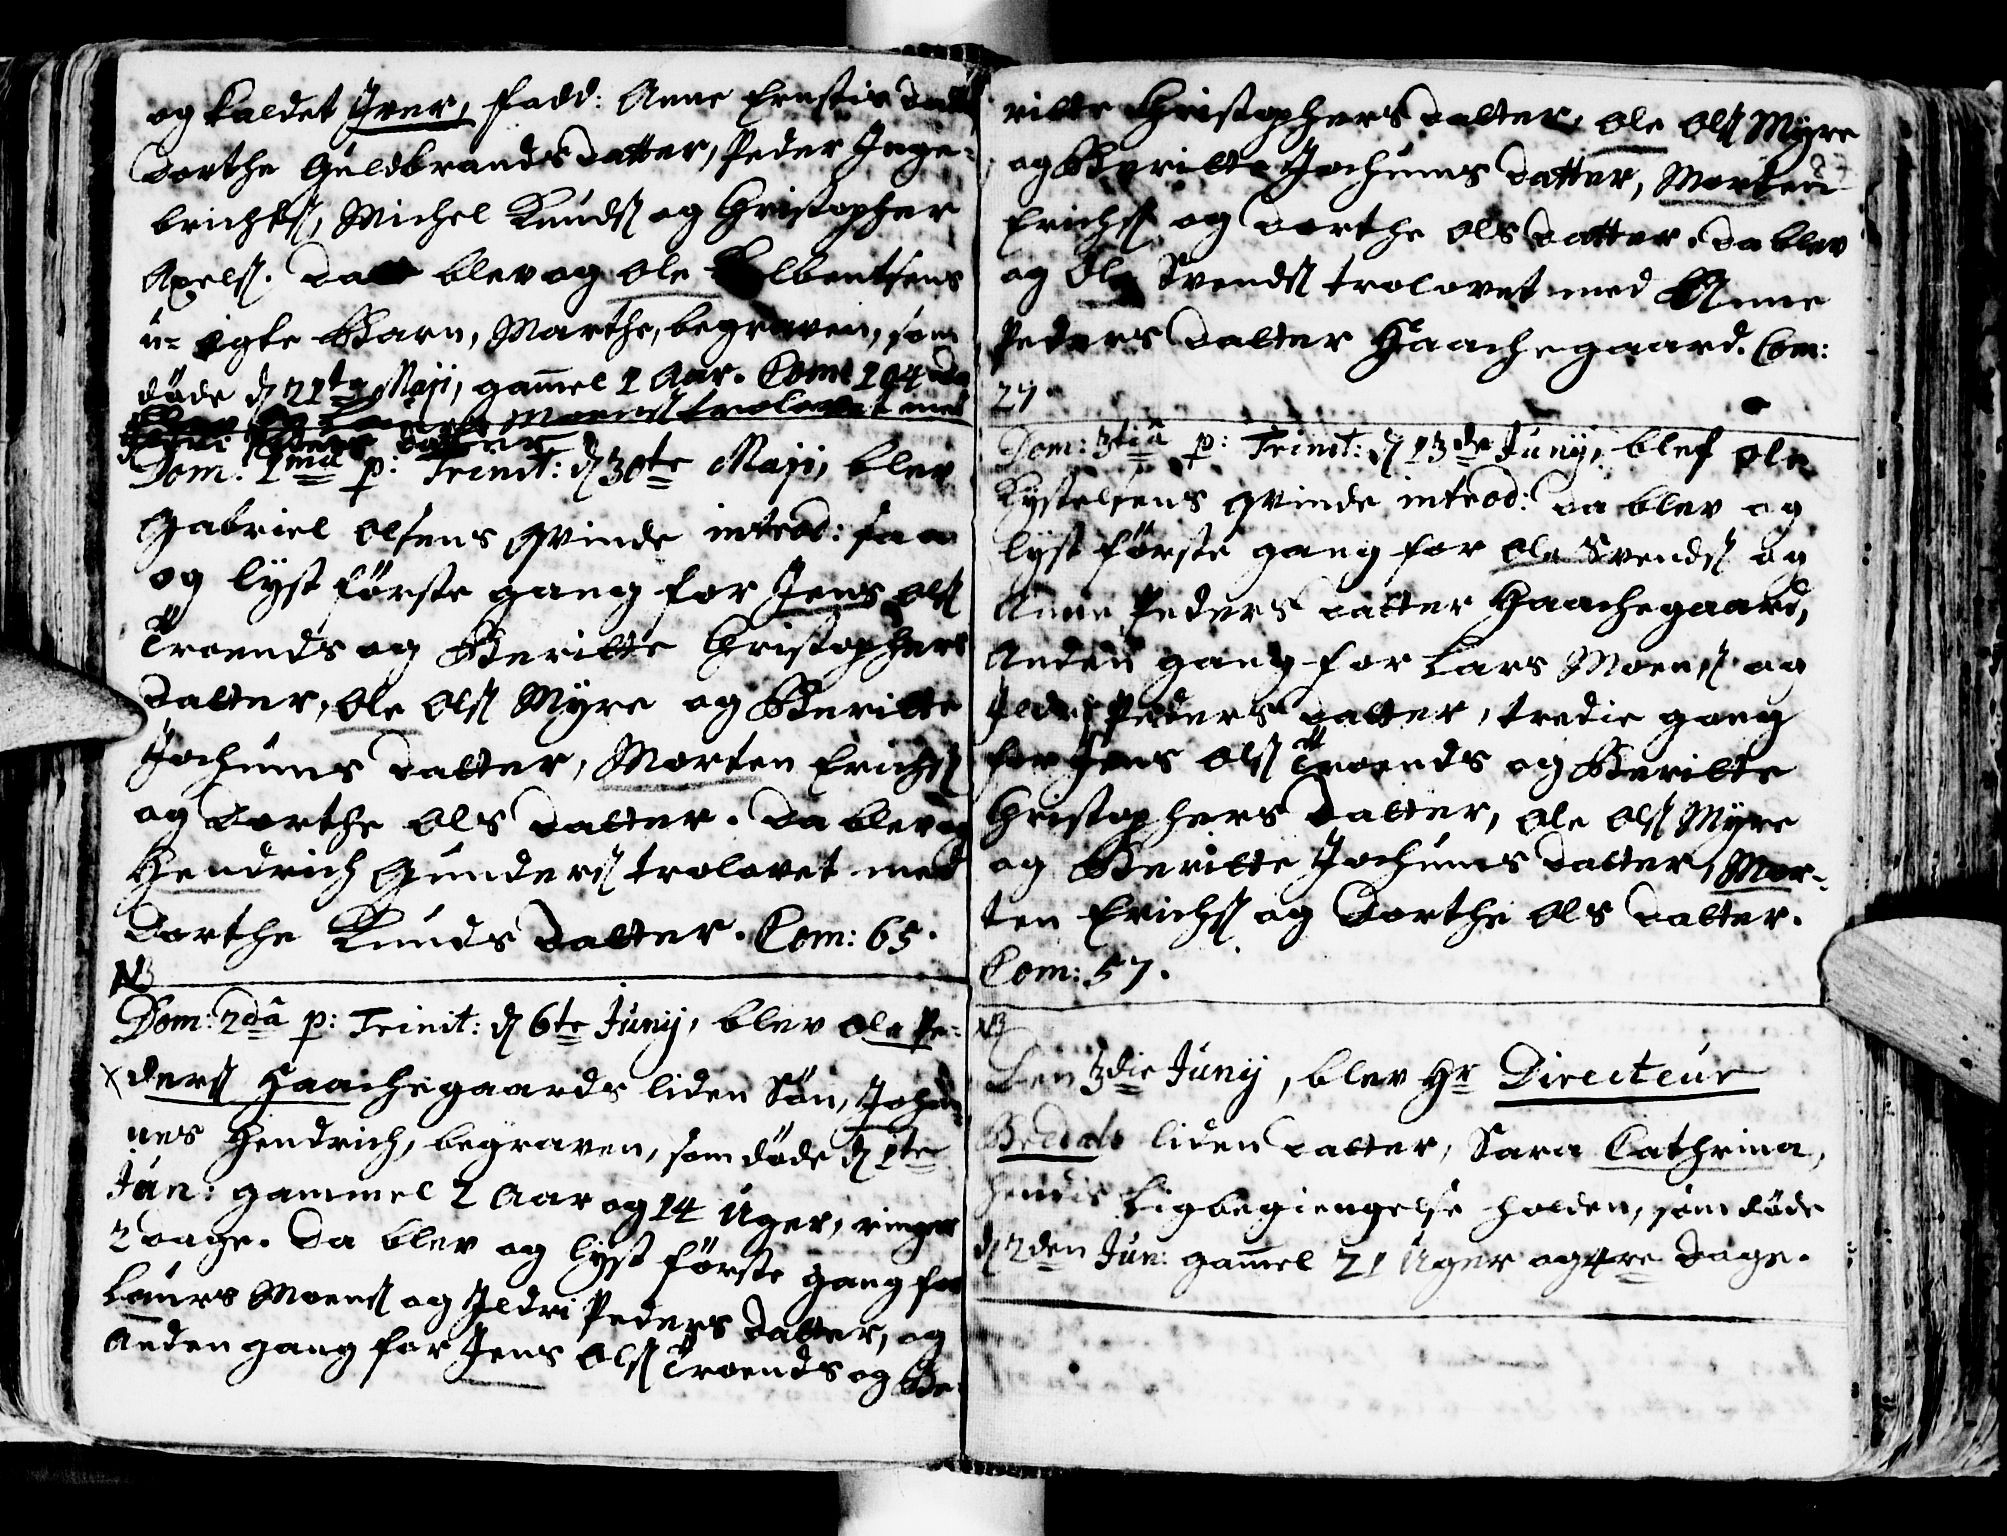 og kaldet Iver, fadd: Anne Ernstis datt
Dorthe Guldbrands datter, Peder Inge-
brichts, Michel Knuds og Christopher
Axels. Da blev og Ole Elbentsens
u-egte Barn, Marthe, begraven, som
døde d 21te Maji, gam̄el 1 Aar. Com: 104
Moens trolovet med
Peders datter
Dom: 1mâ p: Trinit: d 30te Maji, blev
Gabriel Olsens Qvinde introd: saa
og lyst første gang for Jens Ols
Troends og Beritte Christophers
datter, Ole Ols Myre og Beritte
Jochums datter, Morten Erichs
og Dorthe Ols datter. Da blev og
Hendrich Gunders trolovet med
Dorthe Knuds datter. Com: 65.
NB
Dom: 2dâ p: Trinit: d 6te Junij, blev Ole Pe-
x ders Haachegaards liden Søn, Johan-
nes Hendrich, begraven, som døde d 1te
Jun: gammel 2 Aar og 14 Uger, ringer
2 dage. Da blev og lyst første gang for
Laurs Moens og Ildri Peders datter, og
Anden gang for Jens Ols Troends og Be-
ritte Christophers datter, Ole Ols Myre
og Beritte Jochums datter, Morten
Erichs og Dorthe Ols datter. Da blev
og Ole Svends trolovet med Anne
Peders datter Haachegaard. Com:
27.
Dom: 3tiâ p: Trinit: d 13de Junij, blef Ole
Kystelsens Qvinde introd: Da blev og
lyst første gang for Ole Svends og
Anne Peders datter Haachegaard,
Anden gang for Lars Moens og
Ildri Peders datter, tredie gang
for Jens Ols Troends og Beritte
Christophers datter, Ole Ols Myre
og Beritte Jochums datter, Mor-
ten Erichs og Dorthe Ols datter.
Com: 57.
NB
Den 3die Junij, blev Hr Directeur
Bredals liden datter, Sara Cathrina,
hendis Ligbegiengelse holden, som døde
d 2den Jun: gam̄el 21 Uger og 4re dage.